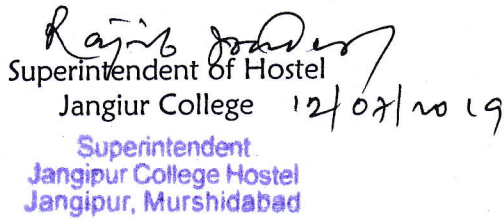 Rajib
Superintendent of Hostel
Jangiur College 12/07/2019
Superintendent
Jangipur College Hostel
Jangipur, Murshidabad